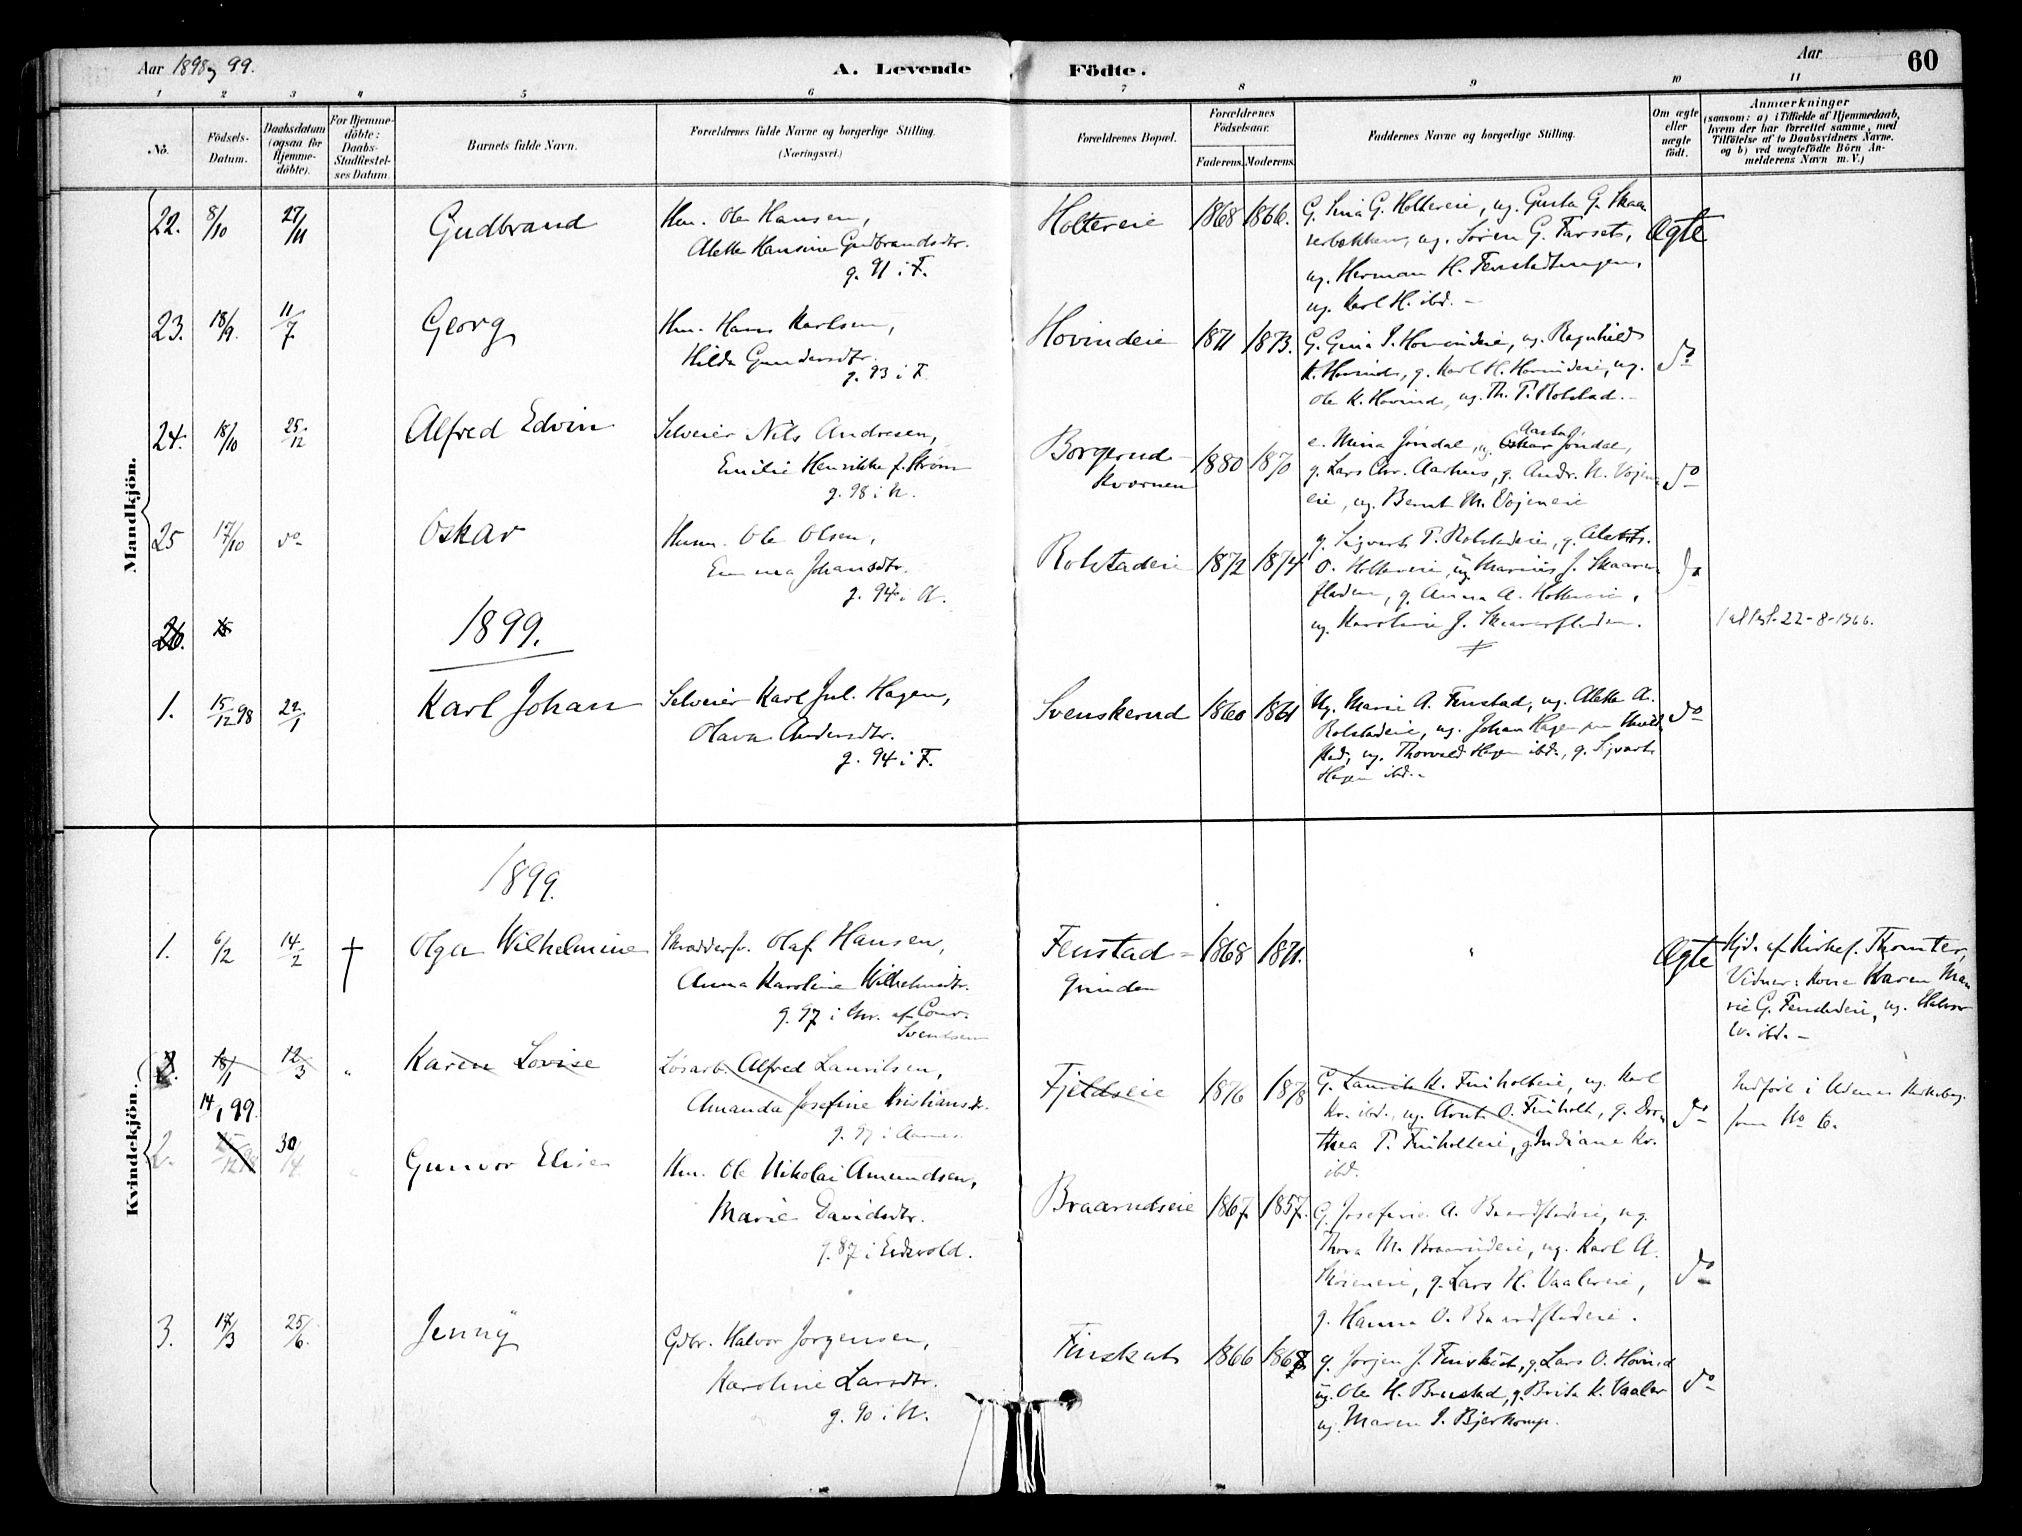 Aar 1898 og 99.
A. Levende Födte.
Aar
60
1 2 3 4 5 6 7 8 9 10 11
No.
Födsels-
Datum.
Daabsdatum
(ogsaa for
Hjemme-
døbte).
For Hjemme-
döbte:
Daabs-
Stadfæstel-
ses Datum.
Barnets fulde Navn.
Forældrenes fulde Navne og borgerlige Stilling.
(Næringsvei.)
Forældrenes Bopæl.
Forældrenes
Födselsaar.
Faderens. Moderens.
Faddernes Navne og borgerlige Stilling.
Om ægte
eller
uægte
født.
Anmærkninger
(saasom: a) i Tilfælde af Hjemmedaab,
hvem der har forrettet samme, med
Tilføielse af to Daabsvidners Navne.
og b) ved uægtefödte Börn An-
melderens Navn m. V.)
Mandkjön.
22. 8/10 27/11 Gudbrand
Hm. Ole Hansen,
Alette Hansine Gudbrandsdtr.
g. 91 i F.
Holtereie 1868 1866.
G. Lina G. Holtereie, ug. Gusta G. Skaa-
rerbakken, ug. Søren G. Farseth,
ug. Herman H. Fenstadengen,
ug. Karl H. ibd. -
Ægte
23. 18/9. 11/7 Georg
Hm. Hans Karlsen,
Hilda Gundersdtr.
g. 93 i F.
Hovindeie 1871 1873.
G. Gina I. Hovindeie, ug. Ragnhild
K. Hovind, g. Karl H. Hovindeie, ug.
Ole K. Hovind, ug. Th. P. Rolstad. -
do
24. 18/10 25/12 Alfred Edvin
Selveier Nils Andresen,
Emilie Henrikke f. Strøm
g. 98 i N.
Borgerud-
kværnen 1880 1870
e. Mina Jøndal, ug. Oskar Jøndal,
g. Lars Chr. Aarhus, g. Andr. N. Vøjen-
eie, ug. Bernt M. Vøjeneie
do
25 17/10 do Oskar
Husm. Ole Olsen,
Emma Johansdtr.
g. 94 i N.
Rolstadeie 1872 1874
g. Sigvart P. Rolstadeie, g. Alette
O. Holtereie, ug. Marius J. Skaarer-
fladen, g. Anna A. Holtereie,
ug. Karoline J. Skaarerfladen.
do
26.
1899.
22-8-1966.
1. 15/12 98 22/1 Karl Johan
Selveier Karl Jul. Hagen,
Olava Andersdtr.
g. 94 i F.
Svenskerud 1860 1861
Ug. Marie A. Fenstad, ug. Alette A.
Rolstadeie, ug. Johan Hagen
stad, ug. Thorvald Hagen ibd., g. Sigvart
Hagen ibd. -
do
Kvindekjön.
1899.
1. 6/2 14/2 † Olga Wilhelmine
Skrædder Olaf Hansen,
Anna Karoline Wilhelmsdtr.
g. 97 i af
Svendsen
Fenstad-
grinden 1868 1871.
"
Ægte
Hjd. af Kirkes. Thomter,
Vidner: Kone Karen Ma-
rie G. Fenstadeie, ug. Halvor
ibd. -
2. 18/1 12/3 " Karen Lovise
Løsarb. Alfred Lauritsen,
Amanda Josefine Kristiansdtr.
g. 97 i Aarnes.
Fjeldseie 1876 1878
G. Laurits K. Finholteie, ug. Karl
Kr. ibd., ug. Arnt O. Finholt, g. Doro-
thea P. Finholteie, g. Indiane Kr.
ibd.
do
Indført i Udenes Kirkebog
som No 6.
14/1 99.
2. 15/12 98 30/14 Gunvor Elise
Hm. Ole Nikolai Amundsen,
Marie Davidsdtr.
g. 87 i Eidsvold.
Braarudseie 1867. 1857.
G. Josefine A. Baardsladeie, ug.
Thora M. Braarudeie, ug. Karl A.
g. Lars H. Vaalereie,
g. Hanna O. Baardsladeie.
do
3. 17/3 25/6. Jenny
Gdbr. Halvor Jørgensen,
Karoline Larsdtr.
g. 90 i N.
Finskut 1866 1868
g. Jørgen J. Finskut, g. Lars O. Hovind
ug. Ole H. Brustad, g. Brita K. Vaaler
ug. Maren I. Bjerkamp.
do